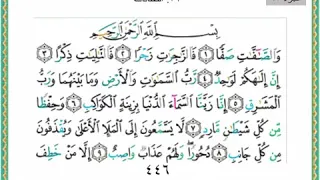 بِسْمِ اللَّهِ الرَّحْمَٰنِ الرَّحِيمِ
وَالصَّٰٓفَّٰتِ صَفًّا ١ فَالزَّٰجِرَٰتِ زَجْرًا ٢ فَالتَّٰلِيَٰتِ ذِكْرًا ٣
إِنَّ إِلَٰهَكُمْ لَوَٰحِدٌ ٤ رَّبُّ السَّمَٰوَٰتِ وَالْأَرْضِ وَمَا بَيْنَهُمَا وَرَبُّ
الْمَشَٰرِقِ ٥ إِنَّا زَيَّنَّا السَّمَآءَ الدُّنْيَا بِزِينَةٍ الْكَوَاكِبِ ٦ وَحِفْظًا
مِّن كُلِّ شَيْطَٰنٍ مَّارِدٍ ٧ لَّا يَسَّمَّعُونَ إِلَى الْمَلَإِ الْأَعْلَىٰ وَيُقْذَفُونَ
مِن كُلِّ جَانِبٍ ٨ دُحُورًا وَلَهُمْ عَذَابٌ وَاصِبٌ ٩ إِلَّا مَنْ خَطِفَ
٤٤٦